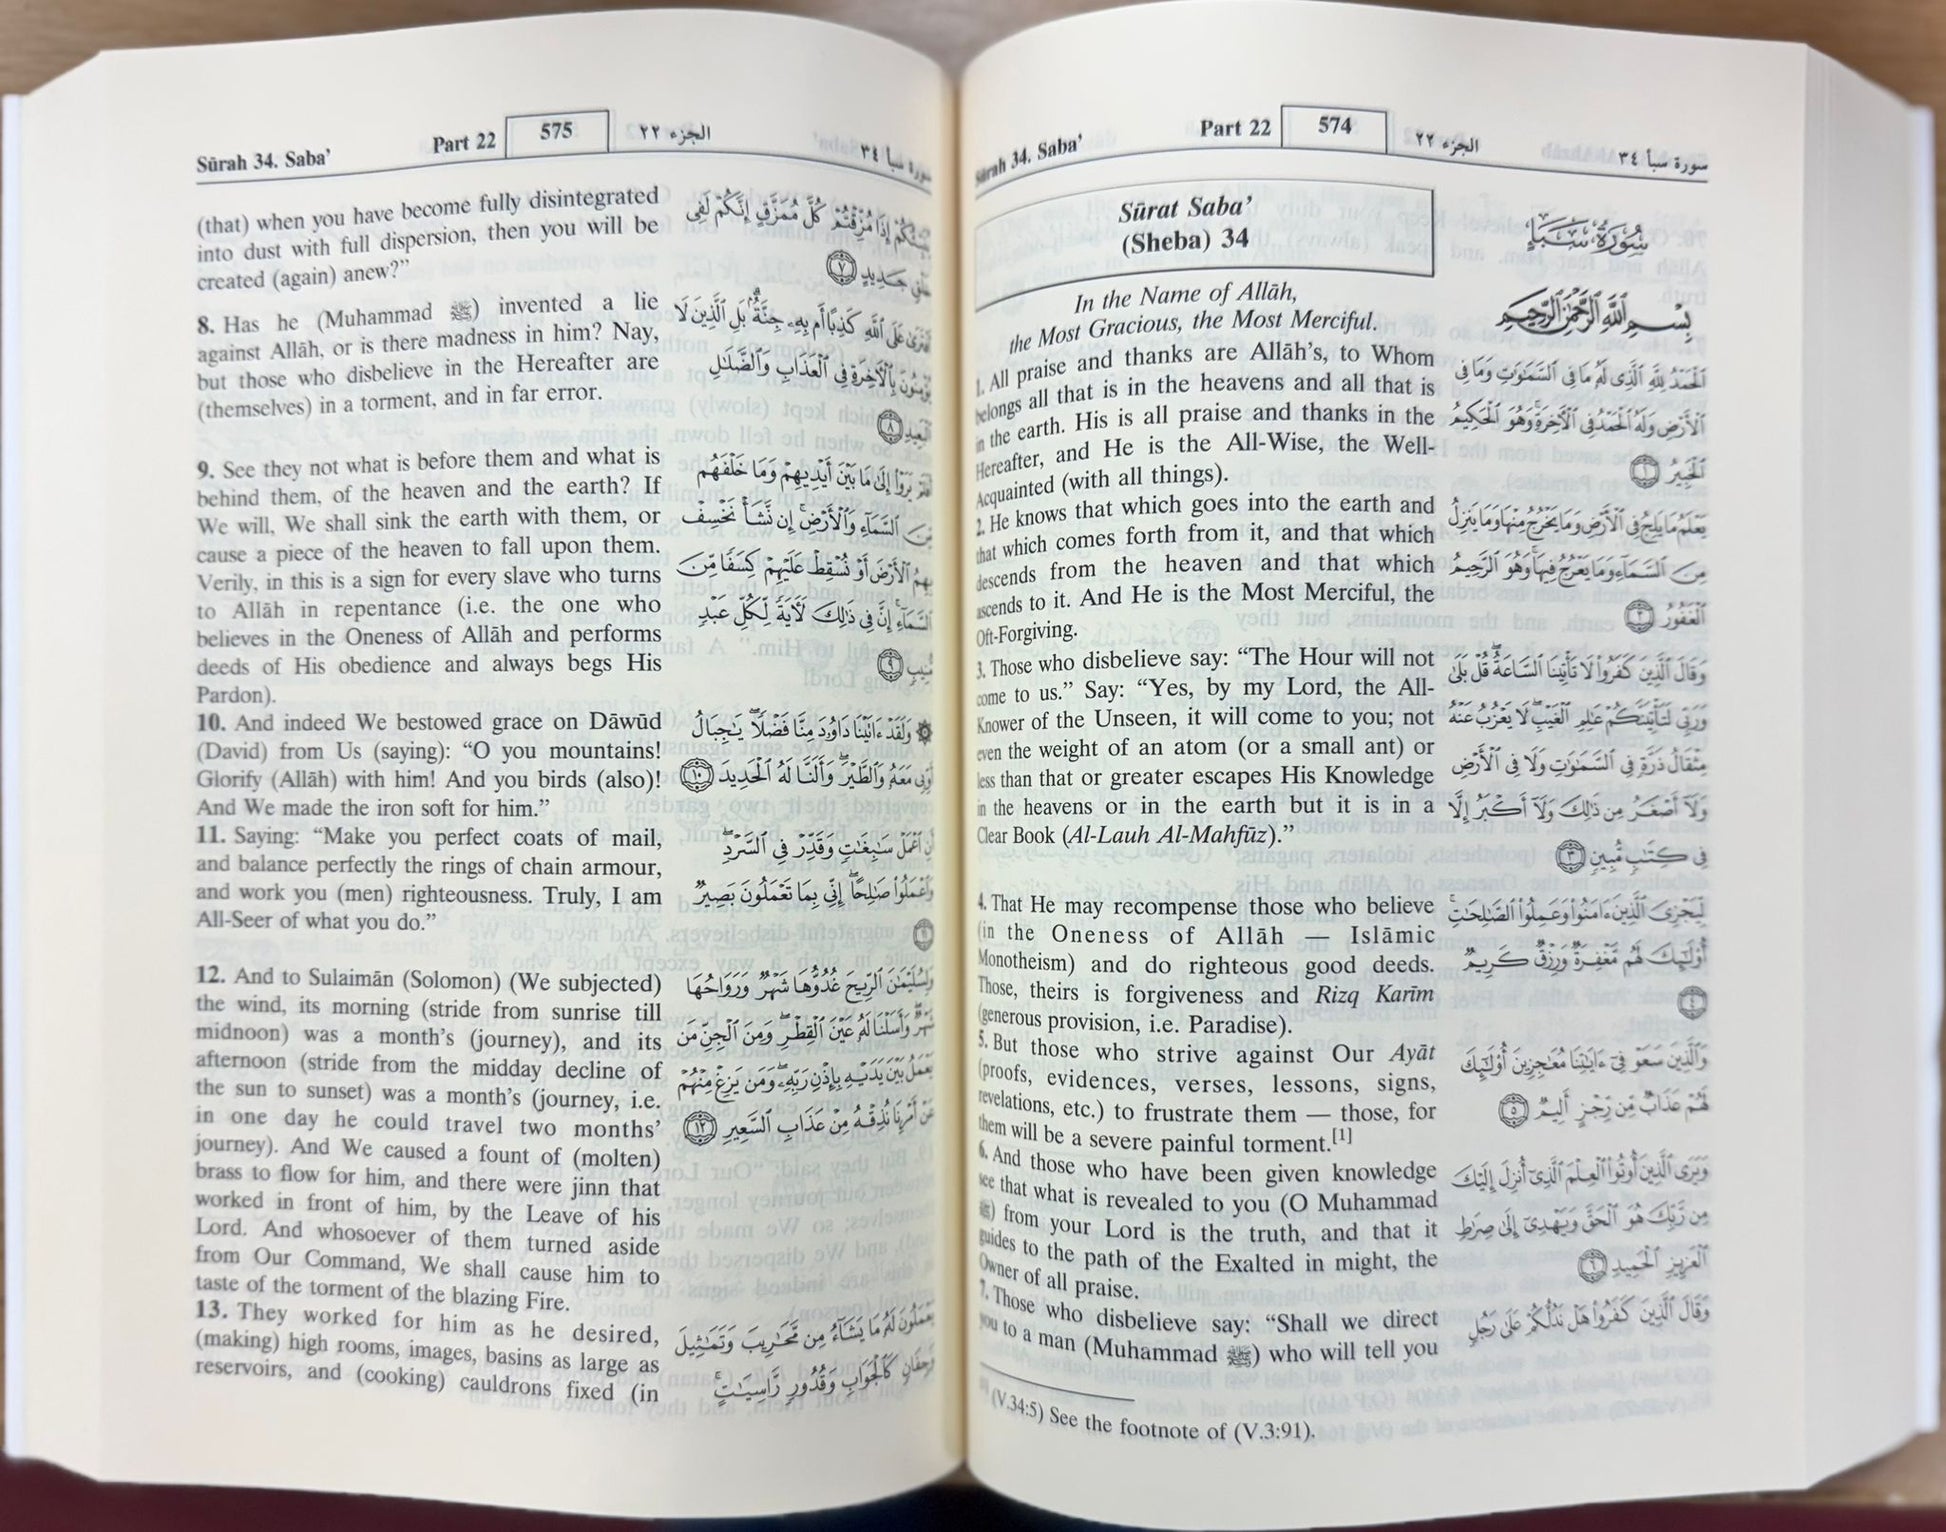 Sūrah 34. Saba’ Part 22 574 الجزء ٢٢ سورة سبأ ٣٤
Sūrat Saba’
(Sheba) 34
In the Name of Allāh,
the Most Gracious, the Most Merciful.
1. All praise and thanks are Allāh’s, to Whom
belongs all that is in the heavens and all that is
in the earth. His is all praise and thanks in the
Hereafter, and He is the All-Wise, the Well-
Acquainted (with all things).
2. He knows that which goes into the earth and
that which comes forth from it, and that which
descends from the heaven and that which
ascends to it. And He is the Most Merciful, the
Oft-Forgiving.
3. Those who disbelieve say: “The Hour will not
come to us.” Say: “Yes, by my Lord, the All-
Knower of the Unseen, it will come to you; not
even the weight of an atom (or a small ant) or
less than that or greater escapes His Knowledge
in the heavens or in the earth but it is in a
Clear Book (Al-Lauh Al-Mahfūz).”
4. That He may recompense those who believe
(in the Oneness of Allāh — Islāmic
Monotheism) and do righteous good deeds.
Those, theirs is forgiveness and Rizq Karīm
(generous provision, i.e. Paradise).
5. But those who strive against Our Ayāt
(proofs, evidences, verses, lessons, signs,
revelations, etc.) to frustrate them — those, for
them will be a severe painful torment.[1]
6. And those who have been given knowledge
see that what is revealed to you (O Muhammad
ﷺ) from your Lord is the truth, and that it
guides to the path of the Exalted in might, the
Owner of all praise.
7. Those who disbelieve say: “Shall we direct
you to a man (Muhammad ﷺ) who will tell you
سُورَةُ سَبَإٍ
بِسْمِ ٱللَّهِ ٱلرَّحْمَٰنِ ٱلرَّحِيمِ
ٱلْحَمْدُ لِلَّهِ ٱلَّذِى لَهُۥ مَا فِى ٱلسَّمَٰوَٰتِ وَمَا فِى
ٱلْأَرْضِ وَلَهُ ٱلْحَمْدُ فِى ٱلْأَخِرَةِ ۚ وَهُوَ ٱلْحَكِيمُ
ٱلْخَبِيرُ ١
يَعْلَمُ مَا يَلِجُ فِى ٱلْأَرْضِ وَمَا يَخْرُجُ مِنْهَا وَمَا يَنزِلُ
مِنَ ٱلسَّمَآءِ وَمَا يَعْرُجُ فِيهَا ۚ وَهُوَ ٱلرَّحِيمُ
ٱلْغَفُورُ ٢
وَقَالَ ٱلَّذِينَ كَفَرُوا۟ لَا تَأْتِينَا ٱلسَّاعَةُ ۖ قُلْ بَلَىٰ
وَرَبِّى لَتَأْتِيَنَّكُمْ عَٰلِمِ ٱلْغَيْبِ ۖ لَا يَعْزُبُ عَنْهُ
مِثْقَالُ ذَرَّةٍ فِى ٱلسَّمَٰوَٰتِ وَلَا فِى ٱلْأَرْضِ
وَلَآ أَصْغَرُ مِن ذَٰلِكَ وَلَآ أَكْبَرُ إِلَّا
فِى كِتَٰبٍ مُّبِينٍ ٣
لِّيَجْزِىَ ٱلَّذِينَ ءَامَنُوا۟ وَعَمِلُوا۟ ٱلصَّٰلِحَٰتِ ۚ
أُو۟لَٰٓئِكَ لَهُم مَّغْفِرَةٌ وَرِزْقٌ كَرِيمٌ
٤
وَٱلَّذِينَ سَعَوْ فِىٓ ءَايَٰتِنَا مُعَٰجِزِينَ أُو۟لَٰٓئِكَ
لَهُمْ عَذَابٌ مِّن رِّجْزٍ أَلِيمٌ ٥
وَيَرَى ٱلَّذِينَ أُوتُوا۟ ٱلْعِلْمَ ٱلَّذِىٓ أُنزِلَ إِلَيْكَ
مِن رَّبِّكَ هُوَ ٱلْحَقَّ وَيَهْدِىٓ إِلَىٰ صِرَٰطِ
ٱلْعَزِيزِ ٱلْحَمِيدِ ٦
وَقَالَ ٱلَّذِينَ كَفَرُوا۟ هَلْ نَدُلُّكُمْ عَلَىٰ رَجُلٍ
(V.34:5) See the footnote of (V.3:91).
Sūrah 34. Saba’ Part 22 575 الجزء ٢٢ سورة سبأ ٣٤
(that) when you have become fully disintegrated
into dust with full dispersion, then you will be
created (again) anew?”
8. Has he (Muhammad ﷺ) invented a lie
against Allāh, or is there madness in him? Nay,
but those who disbelieve in the Hereafter are
(themselves) in a torment, and in far error.
9. See they not what is before them and what is
behind them, of the heaven and the earth? If
We will, We shall sink the earth with them, or
cause a piece of the heaven to fall upon them.
Verily, in this is a sign for every slave who turns
to Allāh in repentance (i.e. the one who
believes in the Oneness of Allāh and performs
deeds of His obedience and always begs His
Pardon).
10. And indeed We bestowed grace on Dāwūd
(David) from Us (saying): “O you mountains!
Glorify (Allāh) with him! And you birds (also)!
And We made the iron soft for him.”
11. Saying: “Make you perfect coats of mail,
and balance perfectly the rings of chain armour,
and work you (men) righteousness. Truly, I am
All-Seer of what you do.”
12. And to Sulaimān (Solomon) (We subjected)
the wind, its morning (stride from sunrise till
midnoon) was a month’s (journey), and its
afternoon (stride from the midday decline of
the sun to sunset) was a month’s (journey, i.e.
in one day he could travel two months’
journey). And We caused a fount of (molten)
brass to flow for him, and there were jinn that
worked in front of him, by the Leave of his
Lord. And whosoever of them turned aside
from Our Command, We shall cause him to
taste of the torment of the blazing Fire.
13. They worked for him as he desired,
(making) high rooms, images, basins as large as
reservoirs, and (cooking) cauldrons fixed (in
إِذَا مُزِّقْتُمْ كُلَّ مُمَزَّقٍ إِنَّكُمْ لَفِى
جَدِيدٍ ٧
عَلَى ٱللَّهِ كَذِبًا أَم بِهِۦ جِنَّةٌۢ ۗ بَلِ ٱلَّذِينَ لَا
بِٱلْأَخِرَةِ فِى ٱلْعَذَابِ وَٱلضَّلَٰلِ
٨
يَرَوْا۟ إِلَىٰ مَا بَيْنَ أَيْدِيهِمْ وَمَا خَلْفَهُم
مِّنَ ٱلسَّمَآءِ وَٱلْأَرْضِ ۚ إِن نَّشَأْ نَخْسِفْ
بِهِمُ ٱلْأَرْضَ أَوْ نُسْقِطْ عَلَيْهِمْ كِسَفًا مِّنَ
ٱلسَّمَآءِ ۚ إِنَّ فِى ذَٰلِكَ لَءَايَةً لِّكُلِّ عَبْدٍ
٩
۞ وَلَقَدْ ءَاتَيْنَا دَاوُۥدَ مِنَّا فَضْلًا ۖ يَٰجِبَالُ
أَوِّبِى مَعَهُۥ وَٱلطَّيْرَ ۖ وَأَلَنَّا لَهُ ٱلْحَدِيدَ ١٠
أَنِ ٱعْمَلْ سَٰبِغَٰتٍ وَقَدِّرْ فِى ٱلسَّرْدِ ۖ
وَٱعْمَلُوا۟ صَٰلِحًا ۖ إِنِّى بِمَا تَعْمَلُونَ بَصِيرٌ
١١
وَلِسُلَيْمَٰنَ ٱلرِّيحَ غُدُوُّهَا شَهْرٌ وَرَوَاحُهَا
شَهْرٌ ۖ وَأَسَلْنَا لَهُۥ عَيْنَ ٱلْقِطْرِ ۖ وَمِنَ ٱلْجِنِّ مَن
يَعْمَلُ بَيْنَ يَدَيْهِ بِإِذْنِ رَبِّهِۦ ۖ وَمَن يَزِغْ مِنْهُمْ
عَنْ أَمْرِنَا نُذِقْهُ مِنْ عَذَابِ ٱلسَّعِيرِ ١٢
يَعْمَلُونَ لَهُۥ مَا يَشَآءُ مِن مَّحَٰرِيبَ وَتَمَٰثِيلَ
وَجِفَانٍ كَٱلْجَوَابِ وَقُدُورٍ رَّاسِيَٰتٍ ۚ